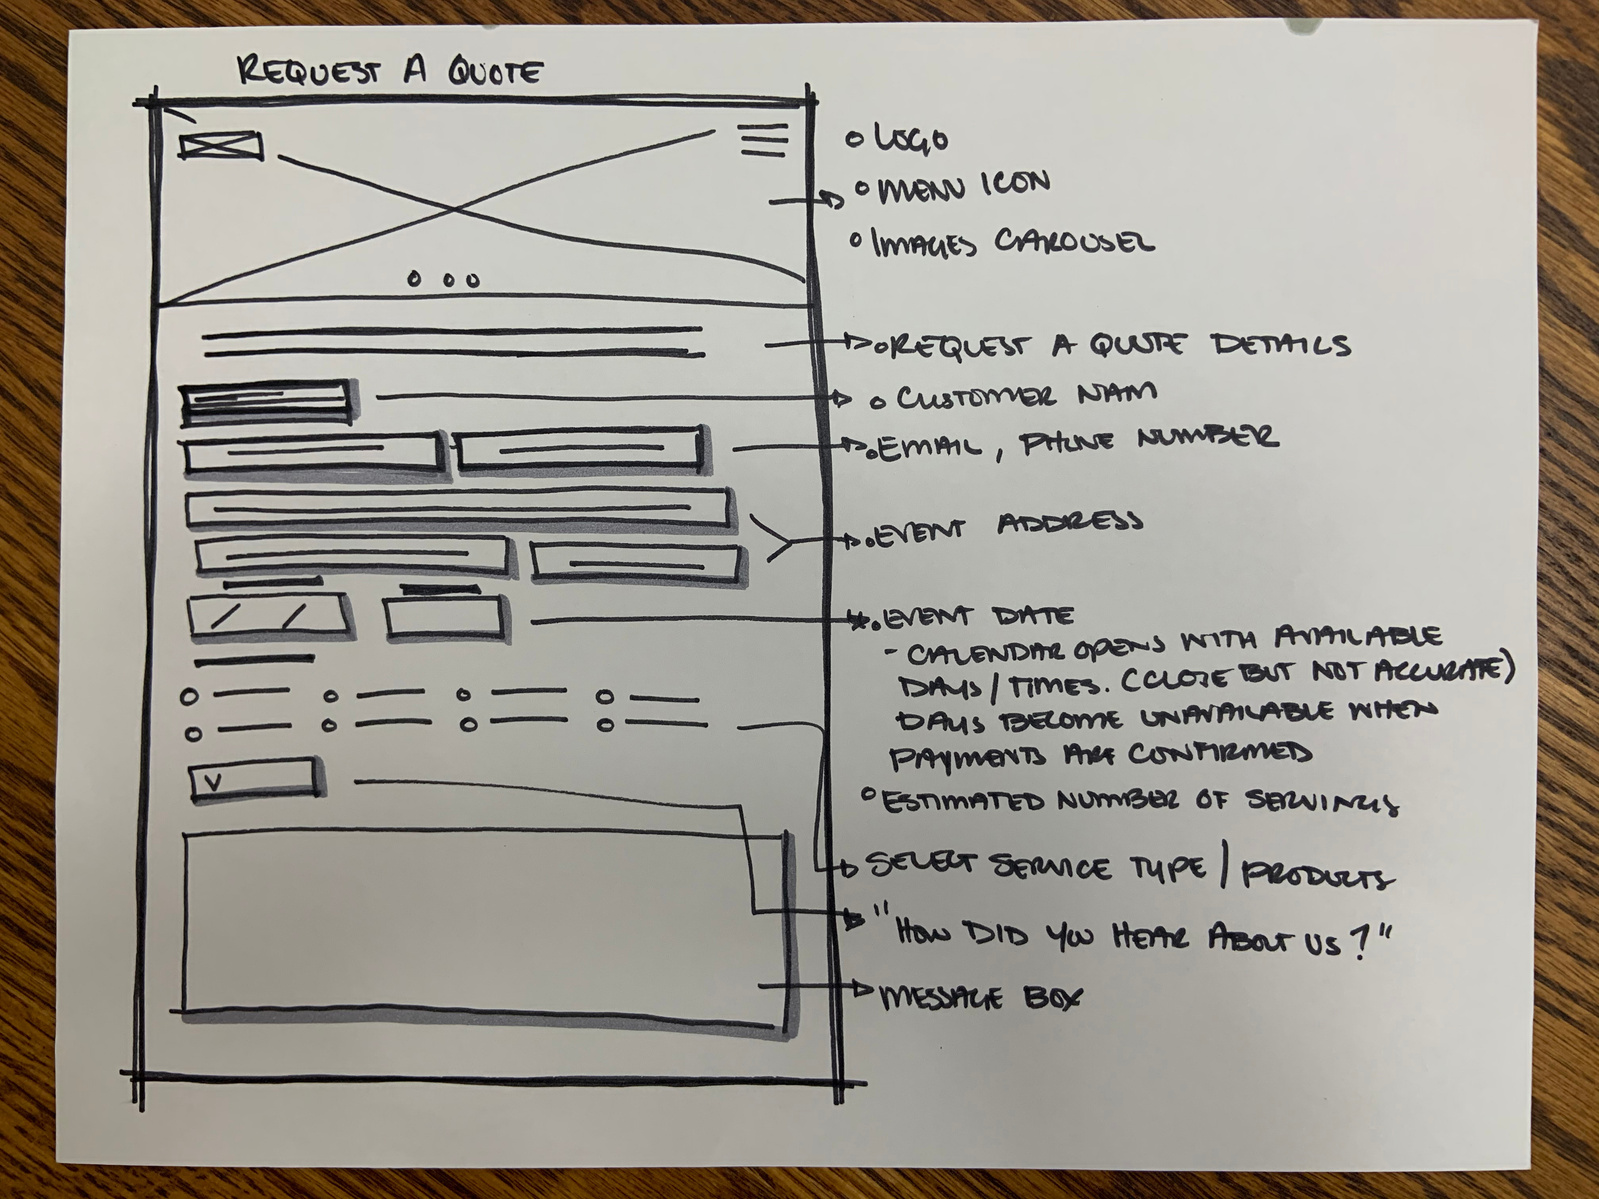 REQUEST A QUOTE
LOGO
MENU ICON
IMAGES CAROUSEL
REQUEST A QUOTE DETAILS
CUSTOMER NAM
EMAIL, PHONE NUMBER
EVENT ADDRESS
EVENT DATE
- CALENDAR OPENS WITH AVAILABLE
DAYS / TIMES. (CLOSE BUT NOT ACCURATE)
DAYS BECOME UNAVAILABLE WHEN
PAYMENTS ARE CONFIRMED
ESTIMATED NUMBER OF SERVINGS
SELECT SERVICE TYPE / PRODUCTS
"HOW DID YOU HEAR ABOUT US?"
MESSAGE BOX